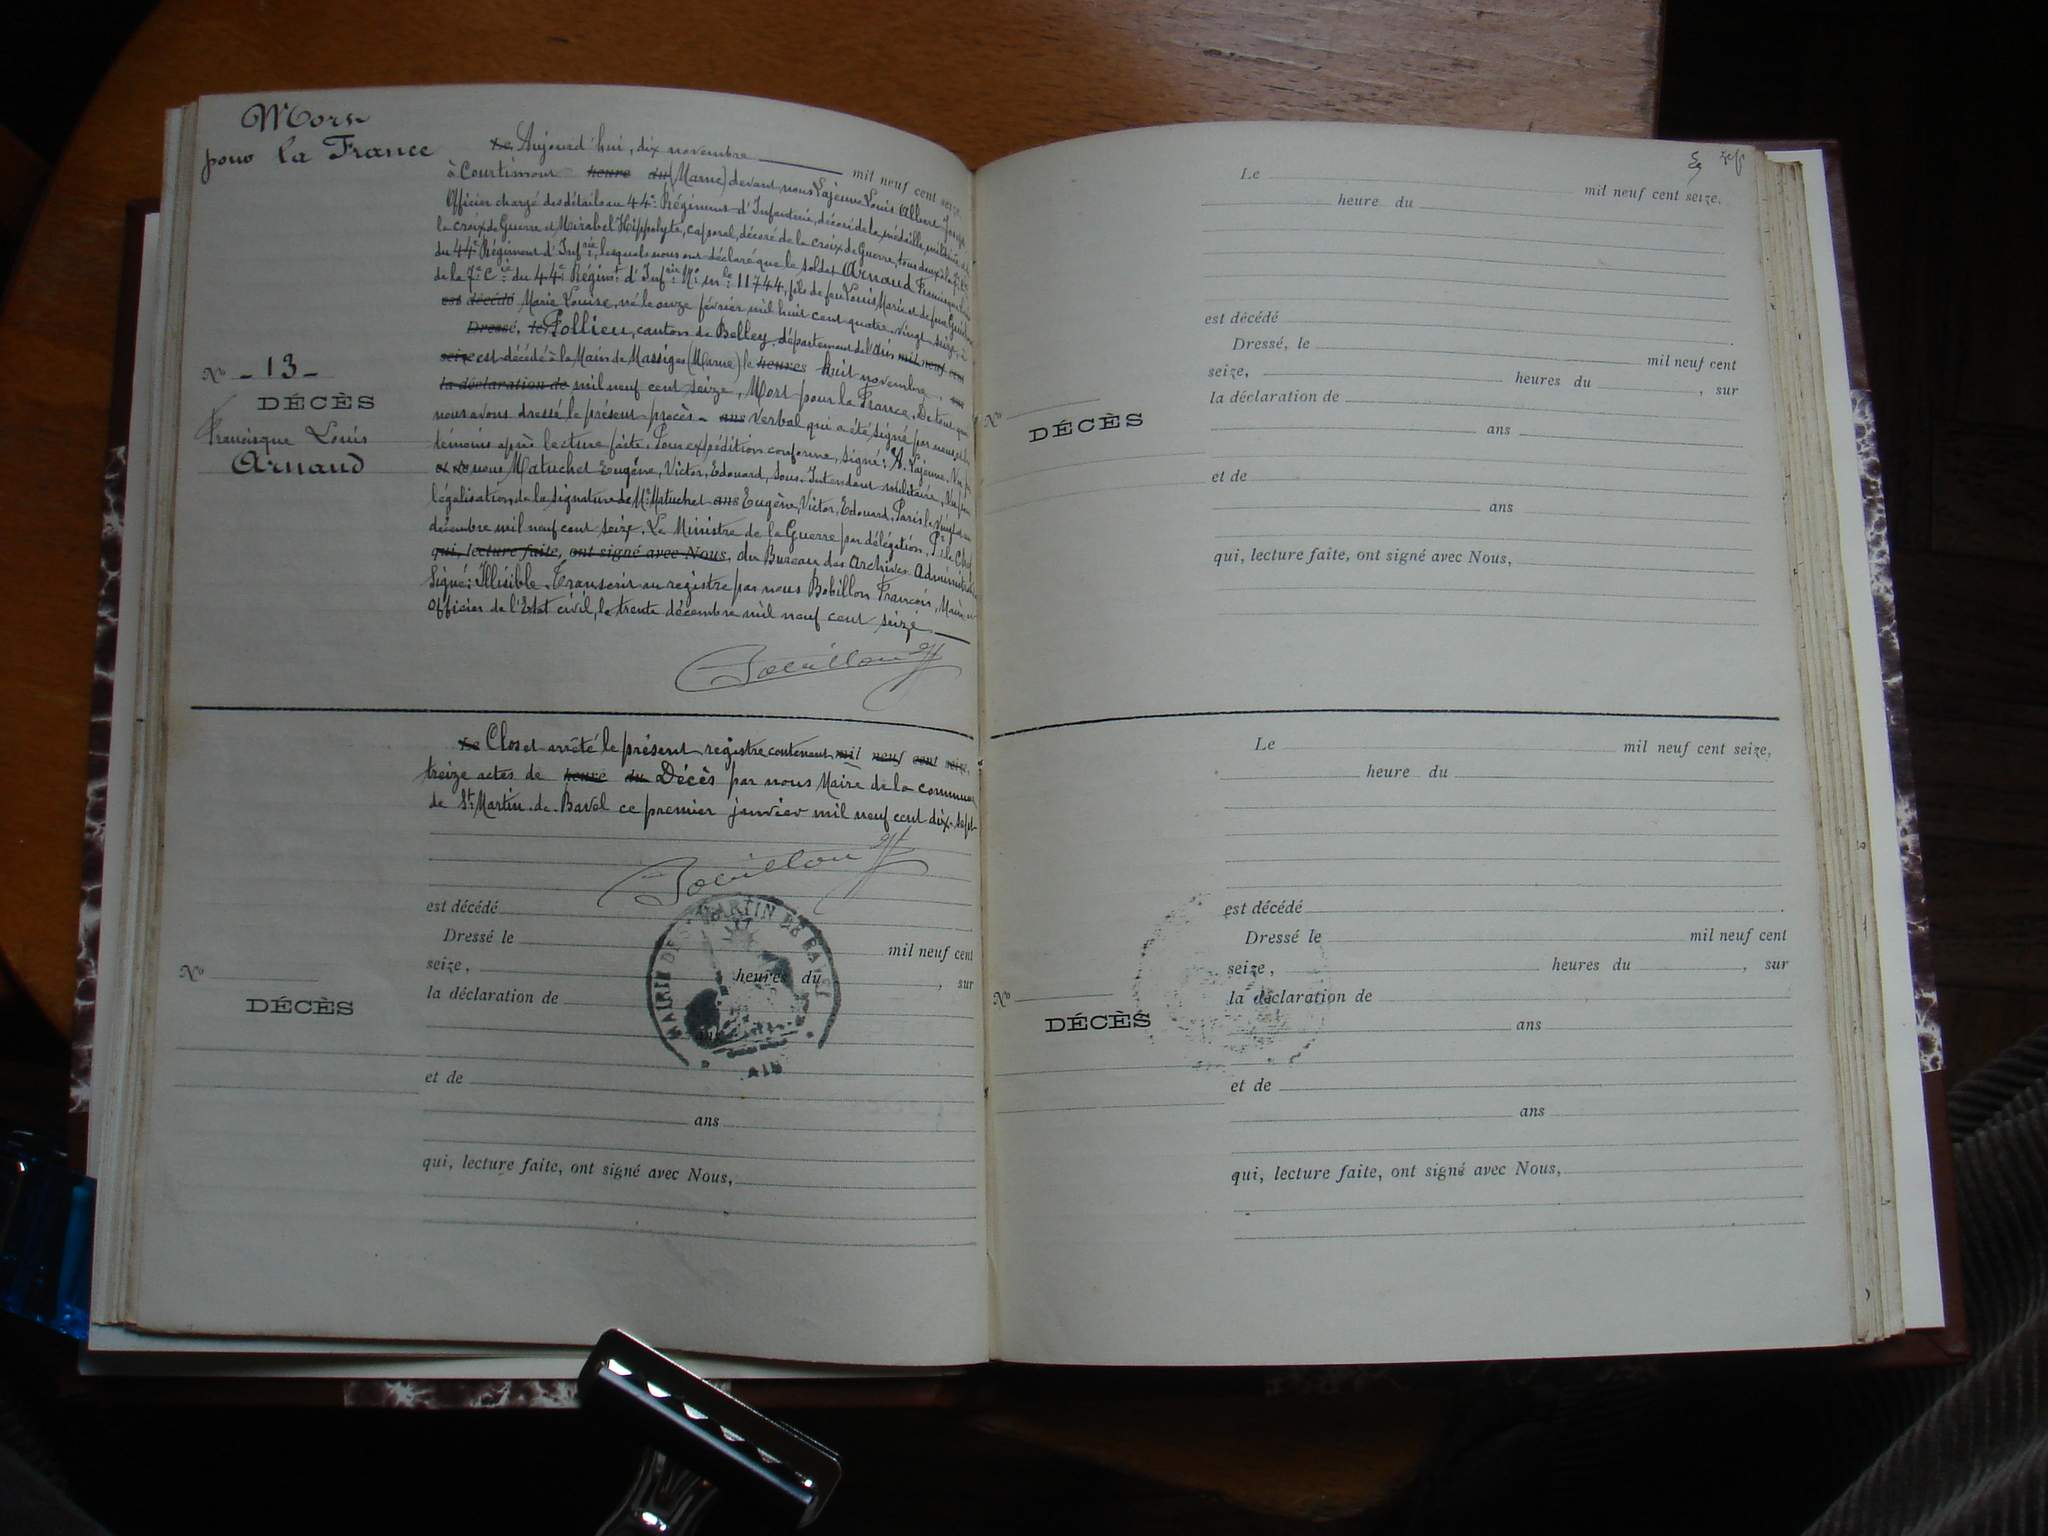 Mort
pour la France
Le Aujourd'hui, dix novembre mil neuf cent seize,
à Courtimont heure du (Marne) devant nous Lajeune Louis Albert Joseph
Officier chargé des détails au 44e Régiment d'Infanterie, décoré de la médaille militaire
la croix de Guerre et Mirabel Hippolyte, caporal, décoré de la croix de Guerre, tous deux
du 44e Régiment d'Infrie, lesquels nous ont déclaré que le soldat Arnaud
de la 7e Cie du 44e Régimt d'Infrie No mle 11744, fils de feu Louis Marie et de feue
est décédé Marie Louise, né le onze février mil huit cent quatre vingt seize, à
Dressé, le Pollieu, canton de Belley, département de l'Ain mil neuf cent
seize est décédé à la Main de Massiges (Marne) le heures huit novembre, sur
la déclaration de mil neuf cent seize, Mort pour la France, De tout quoi
nous avons dressé le présent procès- ans verbal qui a été signé par nous et les
témoins après lecture faite. Pour expédition conforme, signé: A. Lajeune, Vu par
et de nous Matuchet Eugène, Victor, Edouard, Sous-Intendant militaire, Vu pour
légalisation de la signature de Mr Matuchet ans Eugène, Victor, Edouard, Paris le vingt
décembre mil neuf cent seize. Le Ministre de la Guerre par délégation, Pr le Chef
qui, lecture faite, ont signé avec Nous, du Bureau des Archives Administratives
Signé: Illisible. Transcrit au registre par nous Bobillon François, Maire
Officier de l'Etat civil, le trente décembre mil neuf cent seize.
Bobillon
No 13
DÉCÈS
Francisque Louis
Arnaud
Le Clos et arrêté le présent registre contenant mil neuf cent seize,
treize actes de heure du Décès par nous Maire de la commune
de St Martin-de-Bavel ce premier janvier mil neuf cent dix-sept
Bobillon
est décédé
Dressé le mil neuf cent
seize, heures du , sur
la déclaration de
ans
et de
ans
qui, lecture faite, ont signé avec Nous,
No
DÉCÈS
MAIRIE DE ST MARTIN DE BAVEL
AIN
Le mil neuf cent seize,
heure du
est décédé
Dressé, le mil neuf cent
seize, heures du , sur
la déclaration de
ans
et de
ans
qui, lecture faite, ont signé avec Nous,
No
DÉCÈS
Le mil neuf cent seize,
heure du
est décédé
Dressé le mil neuf cent
seize, heures du , sur
la déclaration de
ans
et de
ans
qui, lecture faite, ont signé avec Nous,
No
DÉCÈS